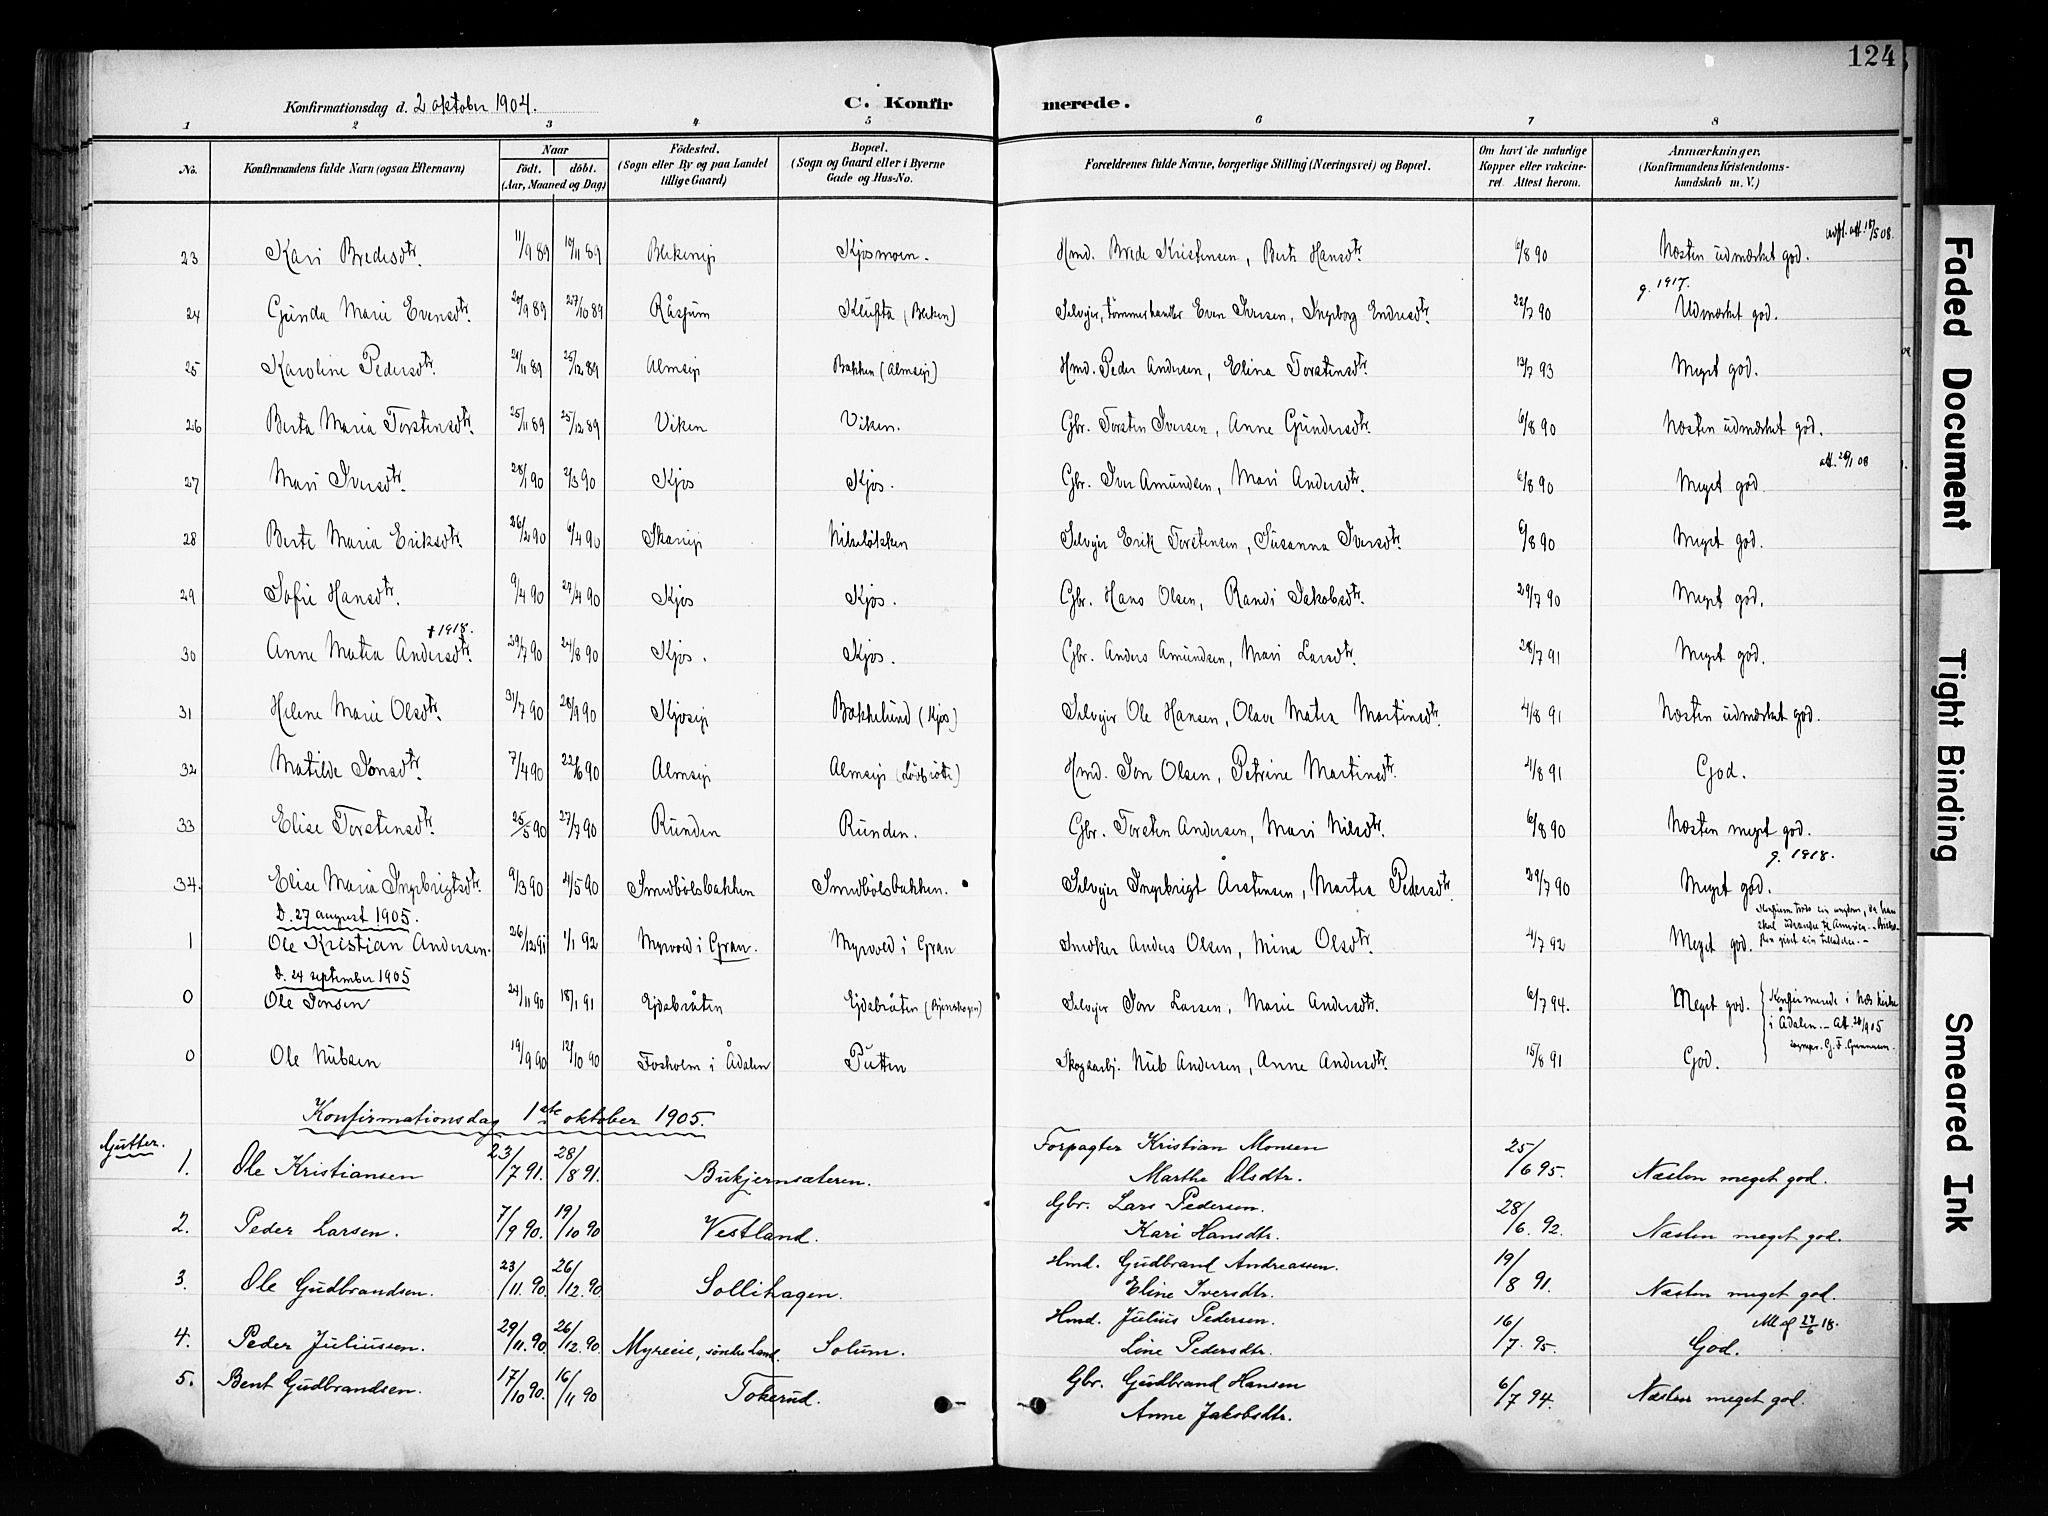 124
Konfirmationsdag d. 2 oktober 1904.
C. Konfirmerede.
1 2 3 4 5 6 7 8
No. Konfirmandens fulde Navn (ogsaa Efternavn) Naar født. døbt. (Aar, Maaned og Dag) Fødested. (Sogn eller By og paa Landet tillige Gaard) Bopæl. (Sogn og Gaard eller i Byerne Gade og Hus-No. Forældrenes fulde Navne, borgerlige Stilling (Næringsvei) og Bopæl. Om havt de naturlige Kopper eller vakcineret Attest herom. Anmærkninger, (Konfirmandens Kristendomskundskab m. V.)
att. 18/5 08.
23 Kari Bredesdtr. 11/9 89 10/11 89 Kjosmoen. Hmd. Brede Kristensen, Berte Hansdtr. 6/8 90 Næsten udmærket god.
g. 1917.
24 Gunda Marie Evensdtr. 20/9 89 27/10 89 Råsjum Klufta (Bleken) Selvejer, tømmerhandler Even Iversen, Ingeborg Endresdtr. 22/7 90 Udmærket god.
25 Karoline Pedersdtr. 21/11 89 25/12 89 Almsejr Bakken (Almsejr) Hmd. Peder Andersen, Elina Torstensdtr. 13/7 93 Meget god.
26 Berta Maria Torstensdtr. 25/11 89 25/12 89 Viken Viken. Gbr. Torsten Iversen, Anne Gundersdtr. 6/8 90 Næsten udmærket god.
att. 28/1 08
27 Mari Iversdtr. 28/1 90 2/3 90 Kjos Kjos. Gbr. Iver Amundsen, Mari Andersdtr. 6/8 90 Meget god.
28 Berte Maria Eriksdtr. 26/2 90 6/4 90 Nibsløkken Selvejer Erik Torstensen, Susanna Iversdtr. 6/8 90 Meget god.
29 Sofie Hansdtr. 9/4 90 27/4 90 Kjos Kjos. Gbr. Hans Olsen, Randi Jakobsdtr. 29/7 90 Meget god.
† 1918.
30 Anne Matea Andersdtr. 29/7 90 24/8 90 Kjos. Kjos. Gbr. Anders Amundsen, Mari Larsdtr. 28/7 91 Meget god.
31 Helene Marie Olsdtr. 31/7 90 28/9 90 Kjosejr Bakkelund (Kjos) Selvejer Ole Hansen, Olave Matea Martinsdtr. 4/8 91 Næsten udmærket god.
32 Matilde Jonsdtr. 7/4 90 22/6 90 Almsejr Almsejr Hmd. Jon Olsen, Petrine Martinsdtr. 4/8 91 God.
33 Elise Torstensdtr. 25/5 90 27/7 90 Runden Runden. Gbr. Torsten Andersen, Mari Nilsdtr. 6/8 90 Næsten meget god.
g. 1918.
34. Elise Maria Ingebrigtsdtr. 9/3 90 4/5 90 Smedbølsbakken Smedbølsbakken. Selvejer Ingebrigt Årstensen, Martea Pedersdtr. 29/7 90 Meget god.
D. 27 august 1905.
1 Ole Kristian Andersen. 26/12 91 1/1 92 Myrvold i Gran. Myrvold i Gran Anders Olsen, Mina Olsdtr. 4/7 92 Meget god.
D. 24 september 1905
0 Ole Jonsen 24/11 90 18/1 91 Ejdsbråten Ejdsbråten Selvejer Jon Larsen, Marie Andersdtr. 6/7 94. Meget god. Konfirmerede i Næs kirke i Ådalen. - Att.
0 Ole Nilsen 19/9 90 12/10 90 Fosholm i Ådalen Putten Skogsarbj. Nils Andersen, Anne Andersdtr. 15/8 91 God.
Konfirmationsdag 1ste oktober 1905.
Gutter.
1. Ole Kristiansen 23/7 91. 28/8 91. Bukjernsæteren. Forpagter Kristian Monsen 25/6 95. Næsten meget god.
Marthe Olsdtr.
2. Peder Larsen. 7/9 90. 19/10 90 Vestland. Gbr. Lars Pedersen. 28/6. 92. Næsten meget god.
Kari Hansdtr.
3. Ole Gudbrandsen. 23/11. 90. 26/12. 90. Sollihagen. Hmd. Gudbrand Andreassen. 19/8 91. Næsten meget god.
Eline Iversdtr.
4. Peder Juliussen. 29/11. 90. 26/12. 90. Myreeie, søndre Land. Solum. Hmd. Julius Pedersen. 16/7. 95. God.
Line Pedersdtr.
5. Bent Gudbrandsen. 17/10 90. 16/11 90 Tokerud. Gbr. Gudbrand Hansen 6/7 94. Næsten meget god.
Anne Jakobsdtr.
Faded Document
Tight Binding
Smeared Ink